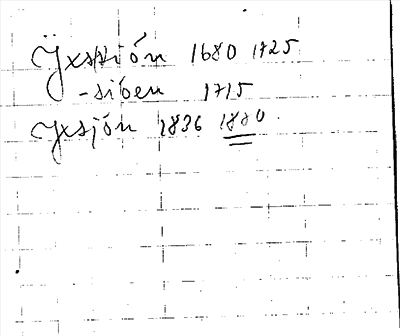 Ÿxssión 1680 1725
-sióen 1715
Yxsjón 1836 1880.